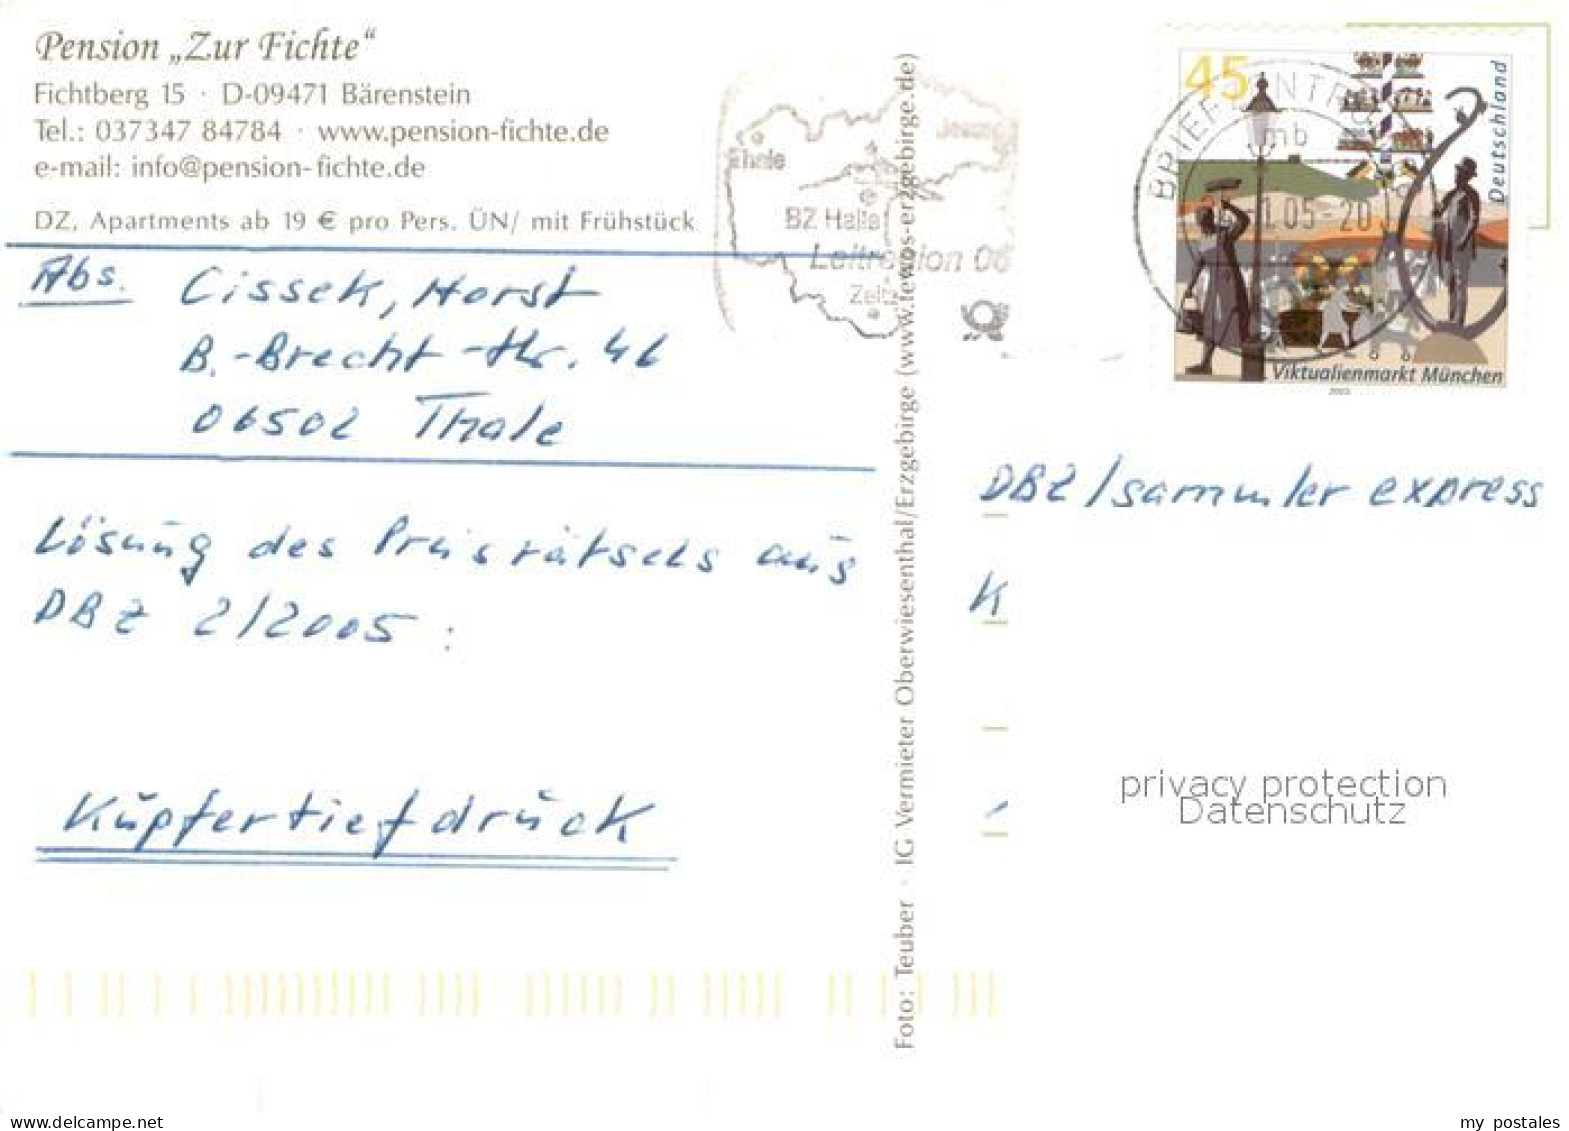 Pension „Zur Fichte“
Fichtberg 15 · D-09471 Bärenstein
Tel.: 037347 84784 · www.pension-fichte.de
e-mail: info@pension-fichte.de
DZ, Apartments ab 19 € pro Pers. ÜN/ mit Frühstück
Abs. Cissek, Horst
B.-Brecht-Str. 46
06502 Thale
Lösung des Preisrätsels aus
DBZ 2/2005:
Kupfertiefdruck
Foto: Teuber · IG Vermieter Oberwiesenthal/Erzgebirge (www.tewos-erzgebirge.de)
BZ Halle
Leitregion 06
Zeitz
BRIEFZENTRUM
mb
05-20
45
Deutschland
Viktualienmarkt München
2003
DBZ/sammler express
K
privacy protection
Datenschutz
delcampe.net
my_postales